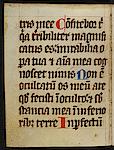 tris mee Confitebor ti
quia terribiliter magnifi
catus es: mirabilia o
pera tua et aīa mea cog
noscet nimis Non ē
occultatū os meū a te
qd fecisti in occulto: et sub
stancia mea in inferio
ribus terre Inpfectū